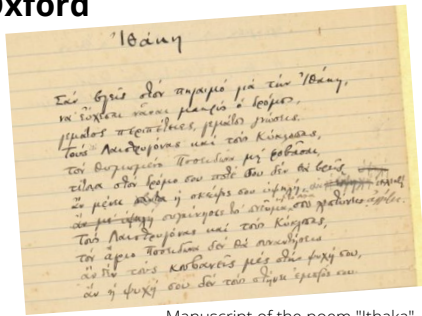 Oxford
Ἰθάκη
Σὰν βγεῖς στὸν πηγαιμὸ γιὰ τὴν Ἰθάκη,
νὰ εὔχεσαι νἆναι μακρὺς ὁ δρόμος,
γεμάτος περιπέτειες, γεμάτος γνώσεις.
Τοὺς Λαιστρυγόνας καὶ τοὺς Κύκλωπας,
τὸν θυμωμένο Ποσειδῶνα μὴ φοβᾶσαι,
τέτοια στὸν δρόμο σου ποτέ σου δὲν θὰ βρεῖς
ἂν μέν' ἡ σκέψις σου ὑψηλή, ἂν ἐκλεκτὴ
συγκίνησις τὸ πνεῦμα
Τοὺς Λαιστρυγόνας καὶ τοὺς Κύκλωπας,
τὸν ἄγριο Ποσειδῶνα δὲν θὰ συναντήσεις
ἂν δὲν τοὺς κουβανεῖς μὲς στὴν ψυχή σου,
ἂν ἡ ψυχή σου δὲν τοὺς στήνει ἐμπρός σου
Manuscript of the poem "Ithaka"